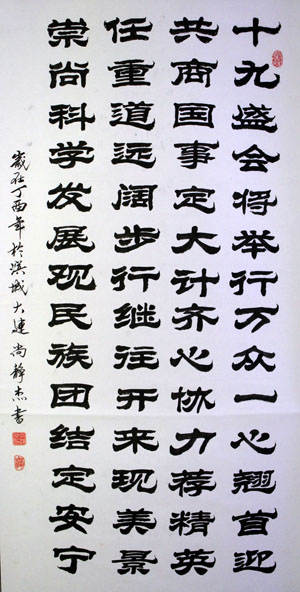 十九盛会将举行万众一心翘首迎
共商国事定大计齐心协力荐精英
任重道远阔步行继往开来现美景
崇尚科学发展观民族团结定安宁
歲在丁酉年於滨城大連尚靜杰書